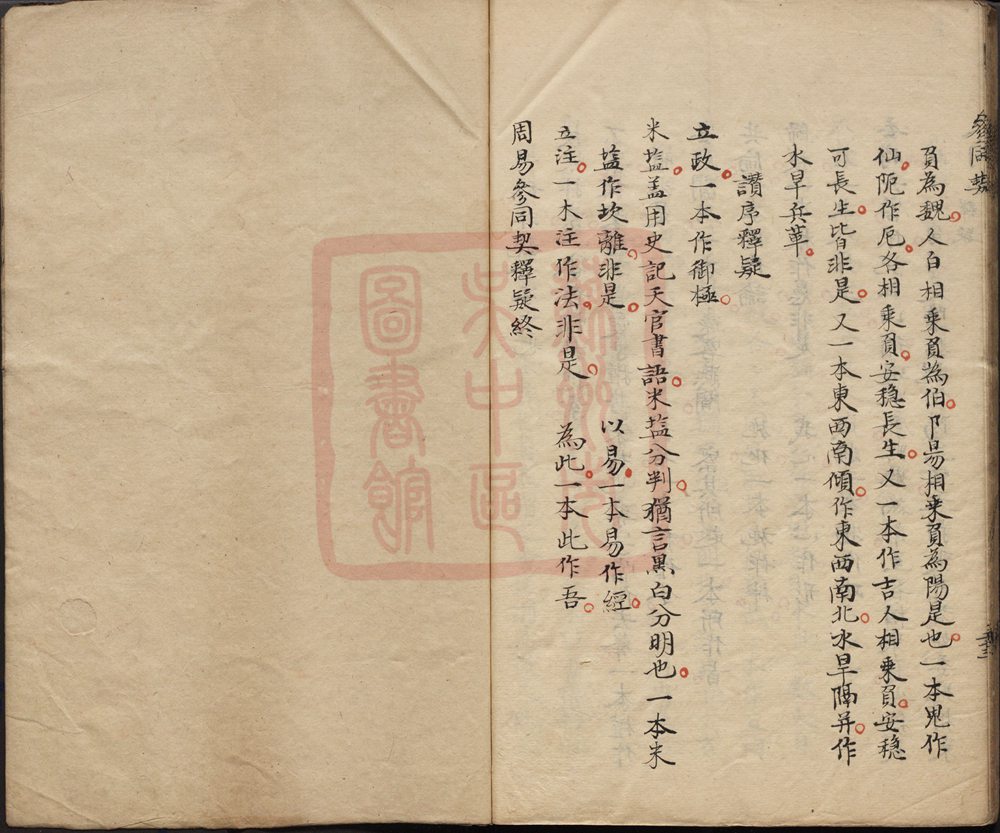 參同契
負為魏人白相乗負為伯阝昜相乗負為陽是也一本鬼作
仙阨作厄各相乗負安穏長生又一本作吉人相乗負安穏
可長生皆非是又一本東西南傾作東西南北水旱隔并作
水旱兵革
讃序釋疑
立政一本作御極
米塩盖用史記天官書語米塩分判猶言黒白分明也一本米
塩作坎離非是 以易一本易作經
立注一木注作法非是 為此一本此作吾
周易參同契釋疑終
蘇州市
吴中區
圖書館